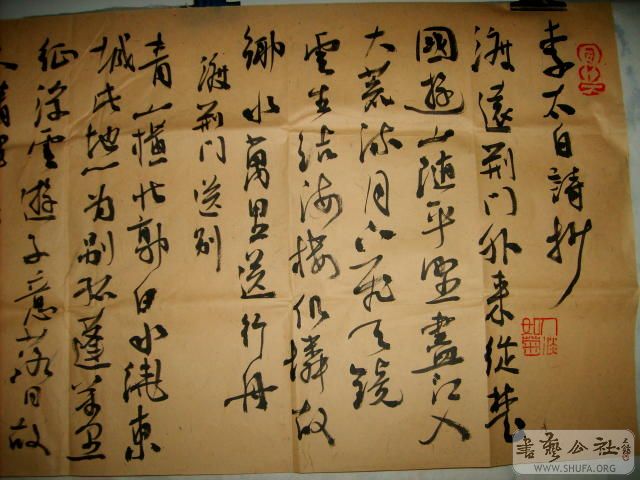 李太白詩抄
渡遠荆门外来從楚
國遊山随平野盡江入
大荒流月下飛天镜
雲生结海楼仍憐故
鄉水萬里送行舟
渡荆门送别
青山橫北郭白水遶東
城此地一为别孤蓬萬里
征浮雲遊子意落日故
人情
書藝公社
WWW.SHUFA.ORG